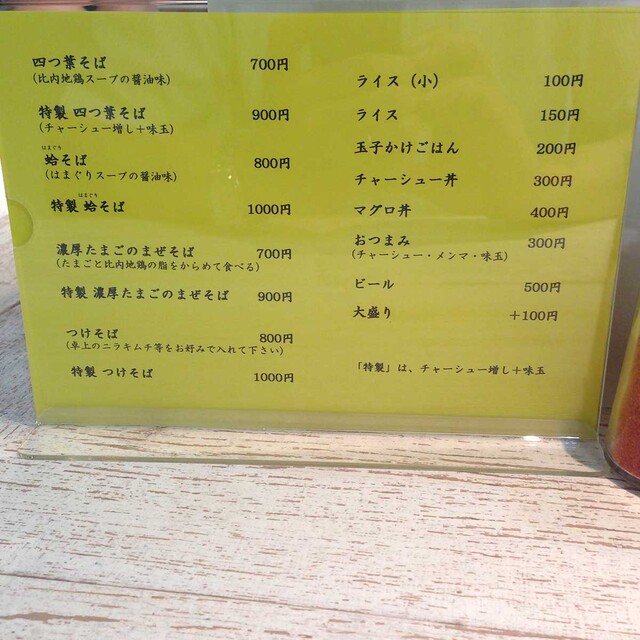 四つ葉そば 700円
(比内地鶏スープの醤油味)
特製 四つ葉そば 900円
(チャーシュー増し+味玉)
はまぐり
蛤そば 800円
(はまぐりスープの醤油味)
はまぐり
特製 蛤そば 1000円
濃厚たまごのまぜそば 700円
(たまごと比内地鶏の脂をからめて食べる)
特製 濃厚たまごのまぜそば 900円
つけそば 800円
(卓上のニラキムチ等をお好みで入れて下さい)
特製 つけそば 1000円
ライス(小) 100円
ライス 150円
玉子かけごはん 200円
チャーシュー丼 300円
マグロ丼 400円
おつまみ 300円
(チャーシュー・メンマ・味玉)
ビール 500円
大盛り +100円
「特製」は、チャーシュー増し+味玉